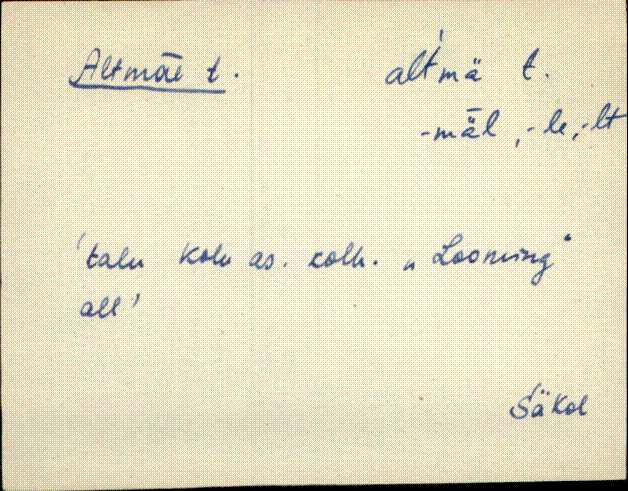 Altmäe t. al't'mä t.
-mäl, -le, -lt
'talu Kolu as. kolh. „Looming“
all'
Säkol